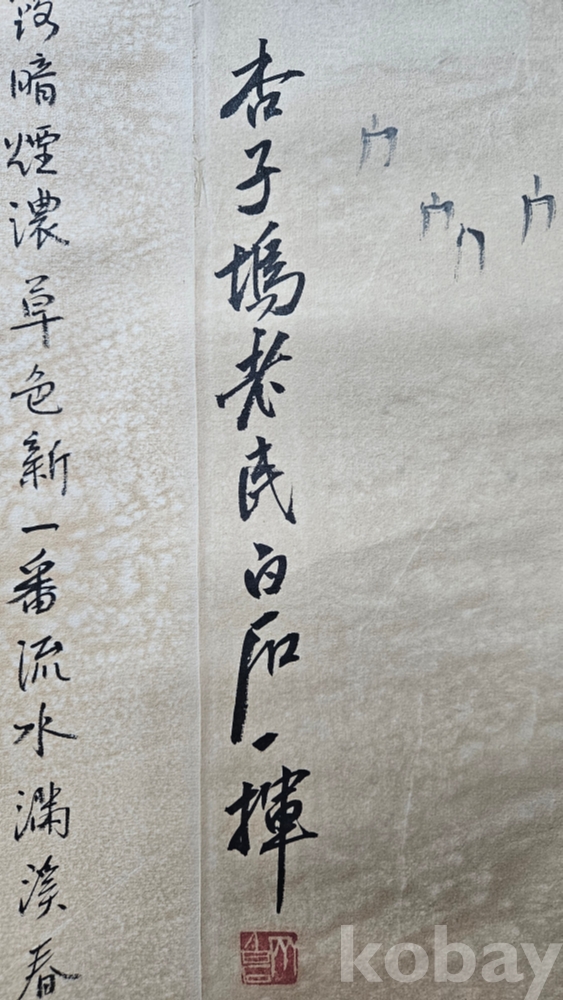 杏子塢老民白石一揮
暗煙濃草色新一番流水滿溪春
kobay